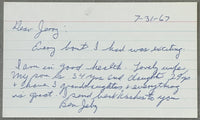 7-31-67
Dear Jerry:
Every bout I had was exciting.
I am in good health. Lovely wife,
My son is 34 yrs and daught 27 yrs
I have 3 granddaughters & everything
is great. I send best wishes to you
Ben Jeby